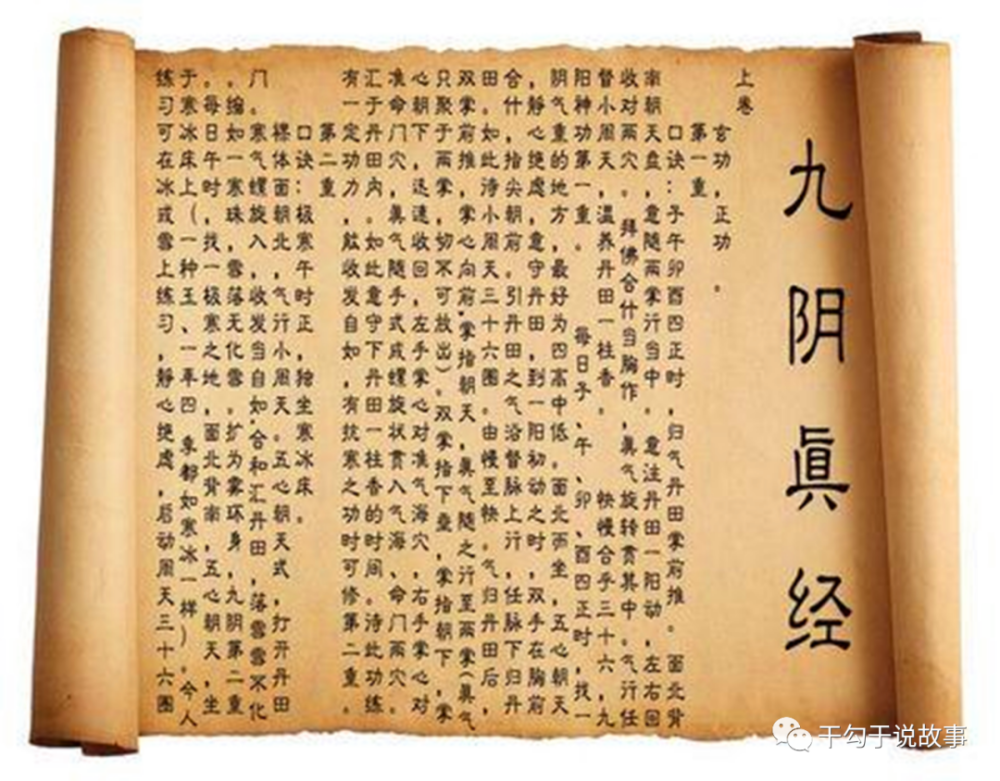 九阴眞经
上卷
玄功,正功。
第一重
口诀:子午卯酉四正时,归气丹田掌前推。面北背
南朝天盘,意随两掌行当中。意注丹田一阳动,左右回
收对两穴。 拜佛合什当胸作。眞气旋转贯其中。气行任
督小周天,温养丹田一柱香。 快慢合乎三十六,九
阳种功第一重。 每日子、午、卯、酉四正时,找一
阴气重的地方,最好为四高中低。面北而坐,五心朝天
,静心绝虑,意守丹田,到一阳初动之时,双手在胸前
合什,指尖朝前。引丹田之气沿督脉上行,任脉下归丹
田。如此,待小周天三十六圈。由慢至快。气归丹田后,
双掌前推,掌心向前,掌指朝天,眞气随之行至两掌(眞气
只聚于两掌,切不可放出)。双掌指下垂,掌指朝下,掌
心朝下,迅速收回,左手掌心对准气海穴,右手掌心对
准命门穴,眞气随手式成螺旋状贯入气海、命门两穴。
汇于丹田内。如此意守下丹田一柱香的时间。待此功练
有一定功力,能收发自如,有抗寒之功时可修第二重。
第二重
口诀:极寒午时正,独坐寒冰床。
裸体面朝北,气行小周天。五心朝天式,打开丹田
门。寒气螺旋入,收发当自如,合和汇丹田,落雪雪不化
。编如一寒珠,雪落无化雪。扩为雾环身,九阴第二重
。每日午时,找一极寒之地,面北背南,五心朝天,坐
于寒冰床上(一种玉、一年四季都如寒冰一样)。今人
练习可在冰或雪上练习,静心绝虑,启动周天三十六圈
干勾于说故事